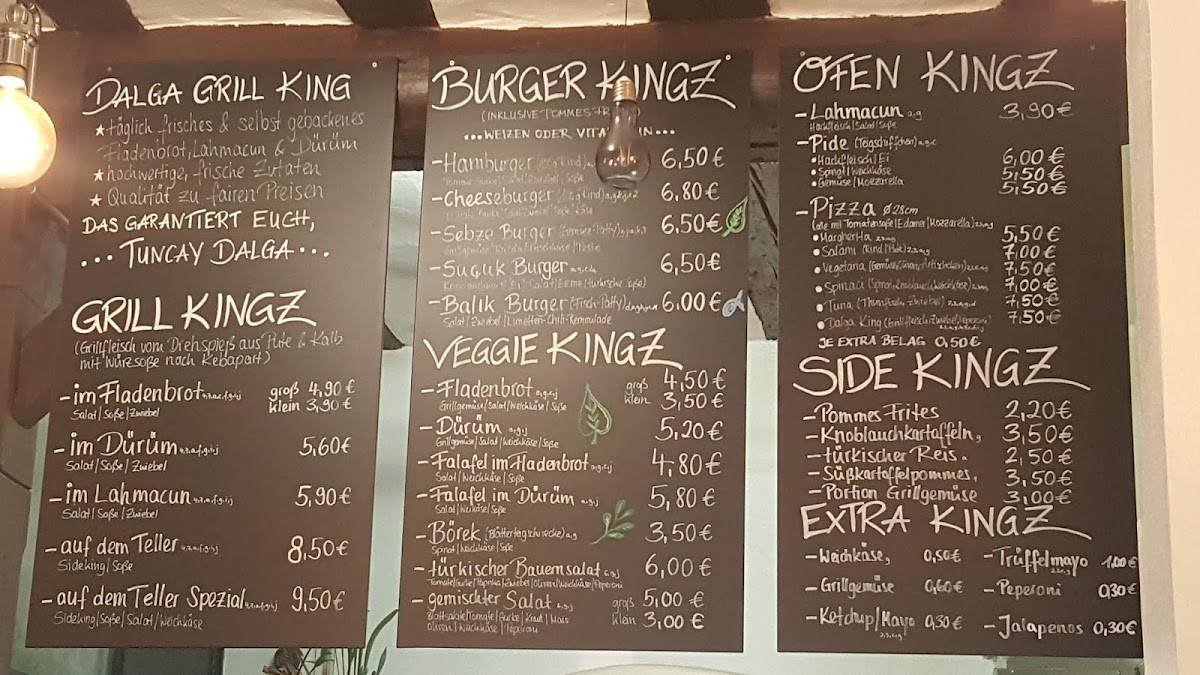 DALGA GRILL KING
★ täglich frisches & selbst gebackenes
Fladenbrot, Lahmacun & Dürüm
★ hochwertige, frische Zutaten
★ Qualität zu fairen Preisen
DAS GARANTIERT EUCH,
... TUNCAY DALGA ...
GRILL KINGZ
(Grillfleisch vom Drehspieß aus Pute & Kalb
mit Würzsoße nach Kebapart)
- im Fladenbrot groß 4,90 €
klein 3,90 €
Salat/Soße/Zwiebel
- im Dürüm 5,60 €
Salat/Soße/Zwiebel
- im Lahmacun 5,90 €
Salat/Soße/Zwiebel
- auf dem Teller 8,50 €
Sideking/Soße
- auf dem Teller Spezial 9,50 €
Sideking/Soße/Salat/Weichkäse
BURGER KINGZ
(INKLUSIVE POMMES
... WEIZEN ODER
- Hamburger 6,50 €
- Cheeseburger 6,80 €
- Sebze Burger 6,50 €
- Suçuk Burger 6,50 €
- Balık Burger (Fisch-Patty) 6,00 €
Salat/Zwiebel/Limetten-Chili-Remoulade
VEGGIE KINGZ
- Fladenbrot groß 4,50 €
klein 3,50 €
Grillgemüse/Salat/Weichkäse/Soße
- Dürüm 5,20 €
Grillgemüse/Salat/Weichkäse/Soße
- Falafel im Fladenbrot 4,80 €
Salat/Weichkäse/Soße
- Falafel im Dürüm 5,80 €
Salat/Weichkäse/Soße
- Börek 3,50 €
Spinat/Weichkäse/Soße
- türkischer Bauernsalat 6,00 €
Tomate/Gurke/Paprika/Zwiebel/Oliven/Weichkäse/Peperoni
- gemischter Salat groß 5,00 €
klein 3,00 €
Blattsalate/Tomate/Gurke/Kraut/Mais
Oliven/Weichkäse/Peperoni
OFEN KINGZ
- Lahmacun 3,90 €
Hackfleisch/Salat/Soße
- Pide (Teigschiffchen)
• Hackfleisch/Ei 6,00 €
• Spinat/Weichkäse 5,50 €
• Gemüse/Mozzarella 5,50 €
- Pizza Ø 28cm
(alle mit Tomatensoße/Edamer/Mozzarella)
• Margherita 5,50 €
• Salami 7,00 €
• Vegetaria 7,50 €
• Spinaci 7,00 €
• Tuna 7,50 €
• Dalga King 7,50 €
JE EXTRA BELAG 0,50 €
SIDE KINGZ
- Pommes Frites 2,20 €
- Knoblauchkartoffeln 3,50 €
- türkischer Reis 2,50 €
- Süßkartoffelpommes 3,50 €
- Portion Grillgemüse 3,00 €
EXTRA KINGZ
- Weichkäse 0,50 € - Trüffelmayo 1,00 €
- Grillgemüse 0,60 € - Peperoni 0,30 €
- Ketchup/Mayo 0,30 € - Jalapenos 0,30 €